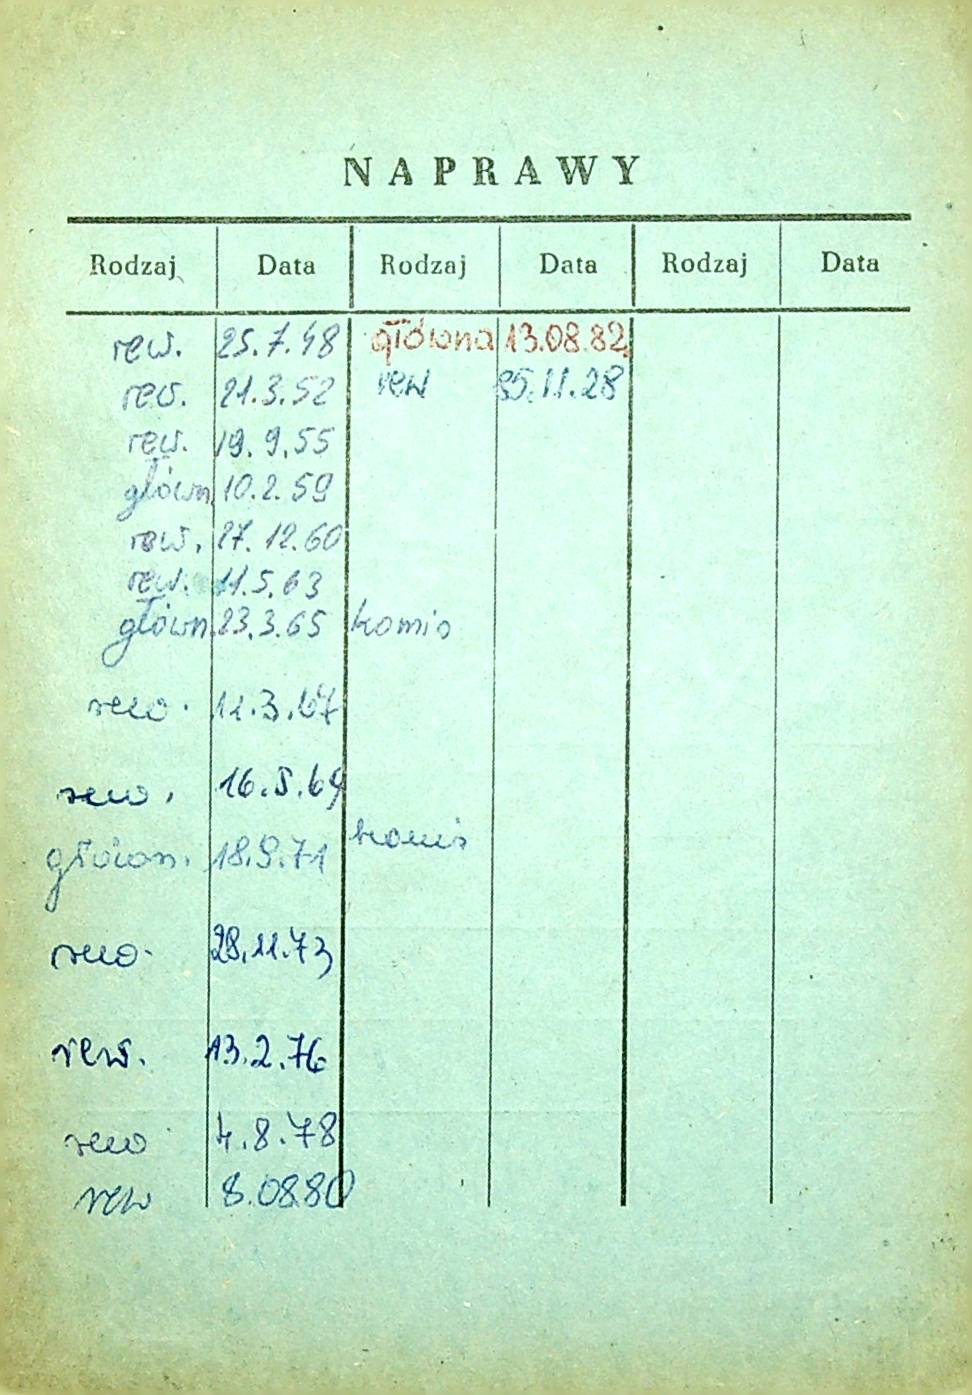 NAPRAWY
Rodzaj Data Rodzaj Data Rodzaj Data
rew. 25.7.48 główna 13.08.82
rew. 21.3.52 rew 85.11.28
rew. 19.9.55
główn. 10.2.59
rew. 27.12.60
rew. 11.5.63
główn. 23.3.65 komis
rew. 11.3.67
rew. 16.5.69
główn. 18.9.71 komis
rew. 28.11.73
rew. 13.2.76
rew 4.8.78
rew 8.0880